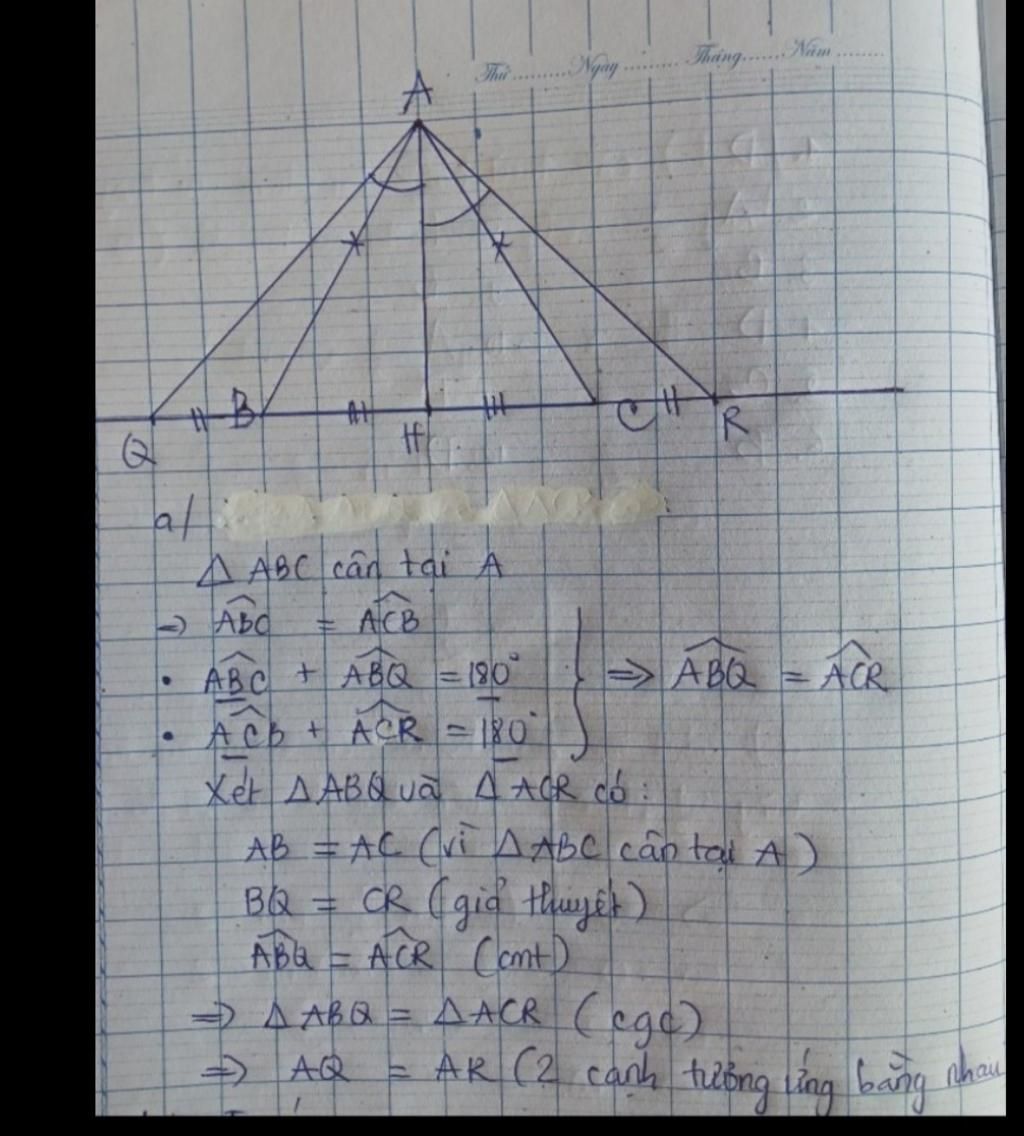 Thứ.........Ngày.........Tháng.......Năm.........
A
Q B H C R
a/
Δ ABC cân tại A
=> \widehat{ABC} = \widehat{ACB}
• \widehat{ABC} + \widehat{ABQ} = 180° } => \widehat{ABQ} = \widehat{ACR}
• \widehat{ACB} + \widehat{ACR} = 180°
Xét ΔABQ và Δ ACR có:
AB = AC (vì ΔABC cân tại A)
BQ = CR (giả thuyết)
\widehat{ABQ} = \widehat{ACR} (cmt)
=> ΔABQ = ΔACR (cgc)
=> AQ = AR (2 cạnh tương ứng bằng nhau